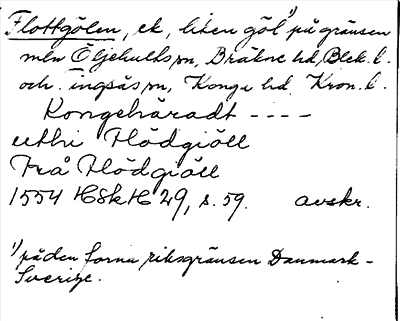 Flottgölen, ek, liten göl 1) på gränsen
mln Öljehults sn, Bräkne hd, Blek. l.
och Tingsås sn, Konga hd Kron. l.
Kongehäradt ----
uthi Flödgiöll
Frå Flödgiöll
1554 HSkH 29, s. 59. avskr.
1) på den forna riksgränsen Danmark-
Sverige.